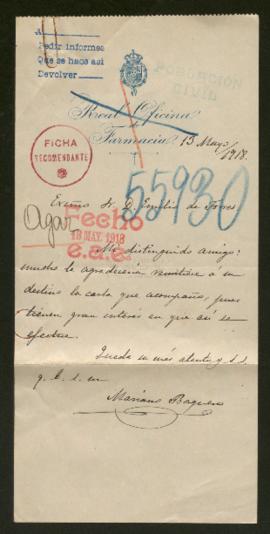 A
Pedir informes
Que se haces así
Devolver
POBLACION
CIVIL
Real Oficina
de
Farmacia
13 Mayo/1918.
FICHA
RECOMENDANTE
55930
Excmo Sr. D. Emilio de Torres
Agar
Fecho
18 MAY. 1918
e.a.e.
Mi distinguido amigo:
mucho le agradecería remitiese á su
destino la carta que acompaño, pues
tienen gran interés en que así se
efectue.
Queda su más atento y s.s.
q. b. s. m
Mariano